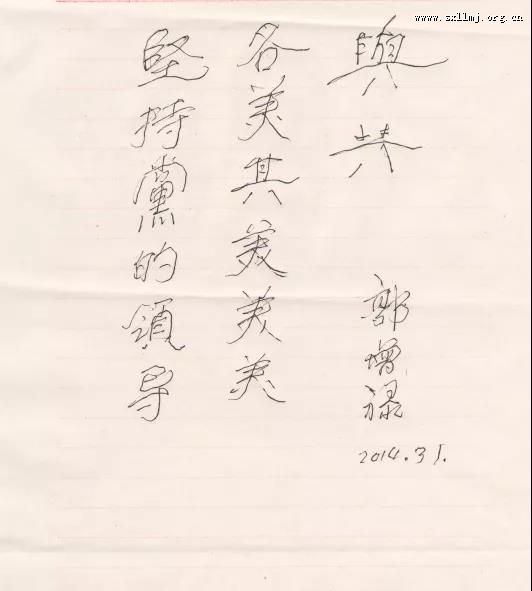 www.sxllmj.org.cn
堅持黨的領导
各美其美美美
與共
郭增禄
2014.31.